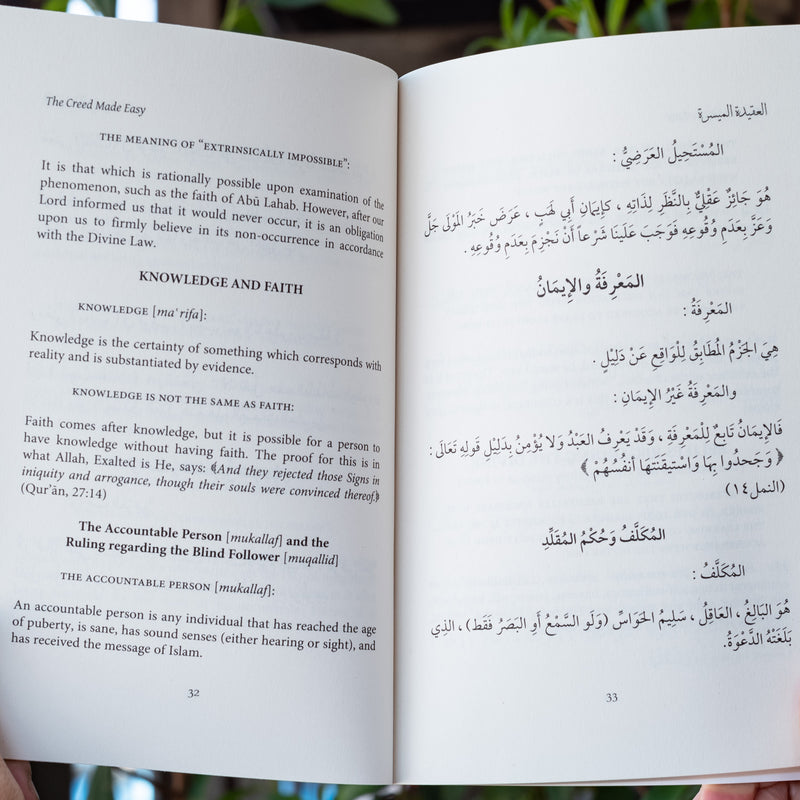 The Creed Made Easy
THE MEANING OF “EXTRINSICALLY IMPOSSIBLE”:
It is that which is rationally possible upon examination of the
phenomenon, such as the faith of Abū Lahab. However, after our
Lord informed us that it would never occur, it is an obligation
upon us to firmly believe in its non-occurrence in accordance
with the Divine Law.
KNOWLEDGE AND FAITH
KNOWLEDGE [maʿrifa]:
Knowledge is the certainty of something which corresponds with
reality and is substantiated by evidence.
KNOWLEDGE IS NOT THE SAME AS FAITH:
Faith comes after knowledge, but it is possible for a person to
have knowledge without having faith. The proof for this is in
what Allah, Exalted is He, says: ⟪And they rejected those Signs in
iniquity and arrogance, though their souls were convinced thereof⟫
(Qurʾān, 27:14)
The Accountable Person [mukallaf] and the
Ruling regarding the Blind Follower [muqallid]
THE ACCOUNTABLE PERSON [mukallaf]:
An accountable person is any individual that has reached the age
of puberty, is sane, has sound senses (either hearing or sight), and
has received the message of Islam.
32
العقيدة الميسرة
المُسْتَحِيلُ العَرَضِيُّ :
هُوَ جَائِزٌ عَقْلِيٌّ بِالنَّظَرِ لِذَاتِهِ ، كإِيمَانِ أَبِي لَهَبٍ ، عَرَضَ خَبَرُ المَوْلَى جَلَّ
وَعَزَّ بِعَدَمِ وُقُوعِهِ فَوَجَبَ عَلَيْنَا شَرْعاً أَنْ نَجْزِمَ بِعَدَمِ وُقُوعِهِ .
المَعْرِفَةُ والإِيمَانُ
المَعْرِفَةُ :
هِيَ الجَزْمُ المُطَابِقُ لِلْوَاقِعِ عَنْ دَلِيْلٍ .
والمَعْرِفَةُ غَيْرُ الإِيمَانِ :
فَالإِيمَانُ تَابِعٌ لِلْمَعْرِفَةِ ، وَقَدْ يَعْرِفُ العَبْدُ وَلا يُؤْمِنُ بِدَلِيْلِ قَولِهِ تَعَالَى :
﴿ وَجَحدُوا بِهَا وَاسْتَيقَنَتهَا أنفُسُهُمْ ﴾
(النمل١٤)
المُكَلَّفُ وَحُكْمُ المُقَلِّدِ
المُكَلَّفُ :
هُوَ البَالِغُ ، العَاقِلُ ، سَلِيمُ الحَوَاسِّ (وَلَو السَّمْعُ أَوِ البَصَرُ فَقَط) ، الذِي
بَلَغَتْهُ الدَّعْوَةُ.
33